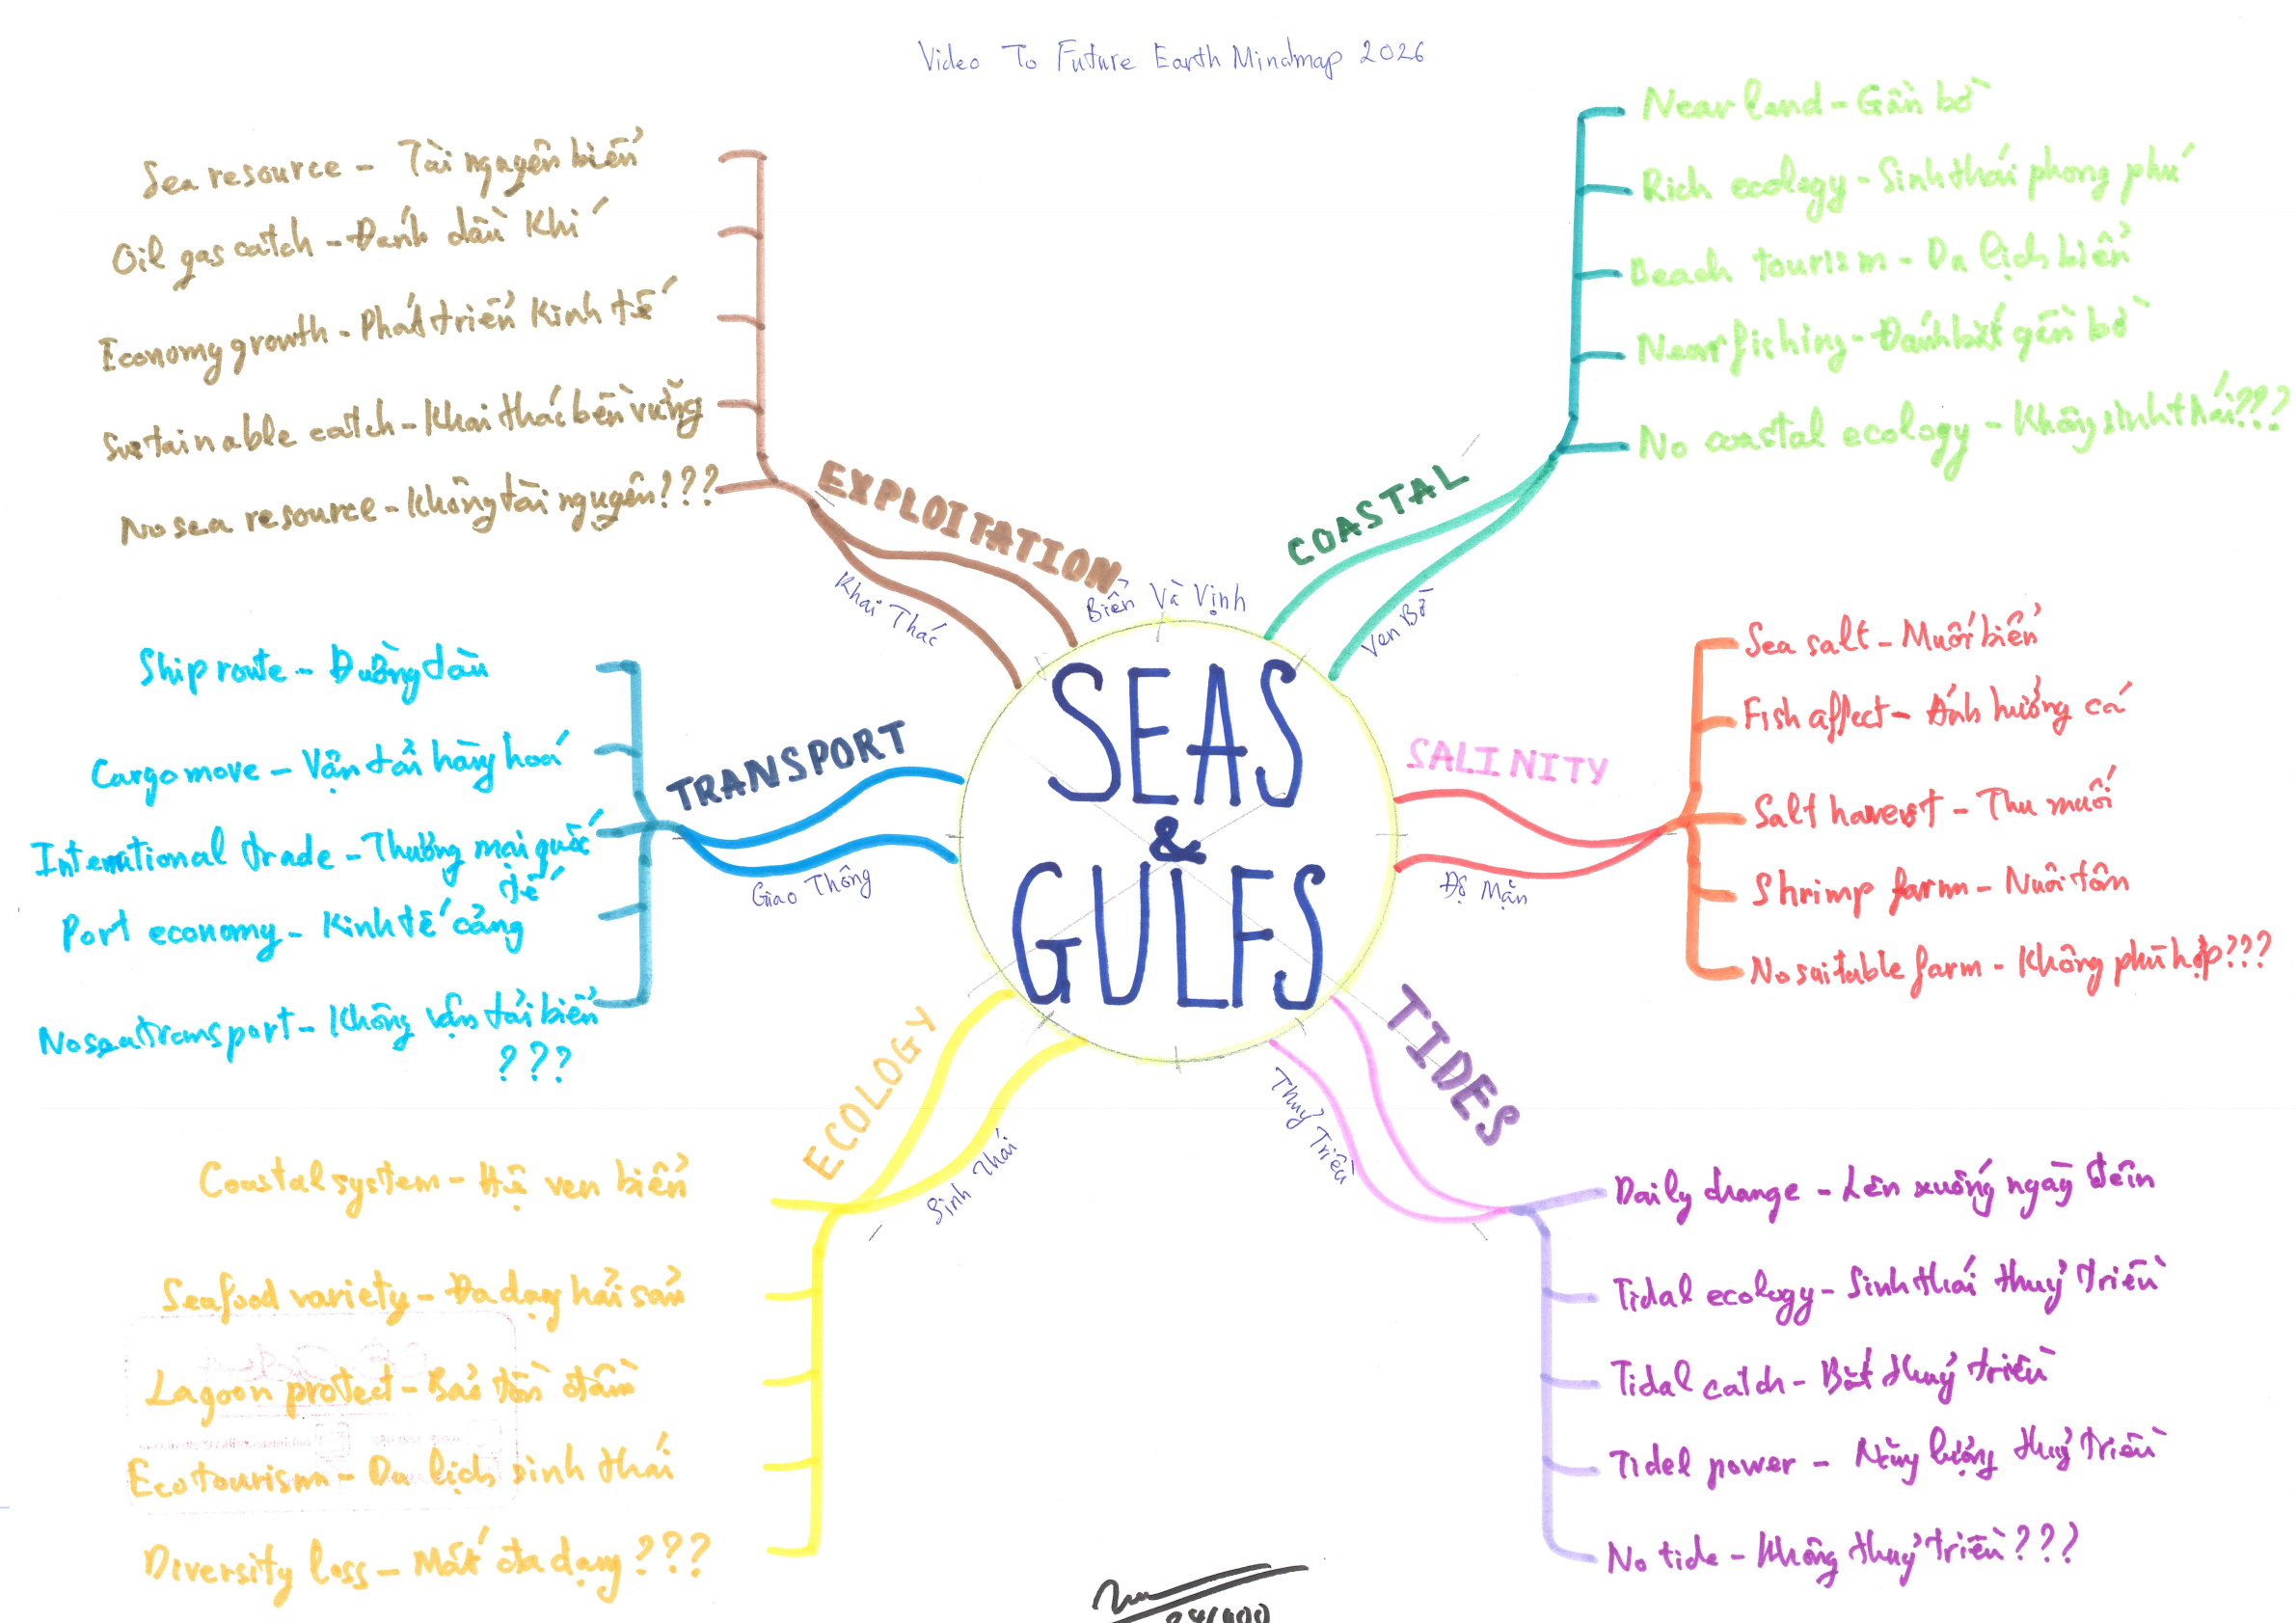 Video To Future Earth Mindmap 2026
SEAS
&
GULFS
Biển Và Vịnh
COASTAL
Ven Bờ
Near land - Gần bờ
Rich ecology - Sinh thái phong phú
Beach tourism - Du lịch biển
Near fishing - Đánh bắt gần bờ
No coastal ecology - Không sinh thái???
SALINITY
Độ Mặn
Sea salt - Muối biển
Fish affect - Ảnh hưởng cá
Salt harvest - Thu muối
Shrimp farm - Nuôi tôm
No suitable farm - Không phù hợp???
TIDES
Thuỷ Triều
Daily change - Lên xuống ngày đêm
Tidal ecology - Sinh thái thuỷ triều
Tidal catch - Bắt thuỷ triều
Tidel power - Năng lượng thuỷ triều
No tide - Không thuỷ triều???
ECOLOGY
Sinh Thái
Coastal system - Hệ ven biển
Seafood variety - Đa dạng hải sản
Lagoon protect - Bảo tồn đầm
Ecotourism - Du lịch sinh thái
Diversity loss - Mất đa dạng???
TRANSPORT
Giao Thông
Ship route - Đường tàu
Cargo move - Vận tải hàng hoá
International trade - Thương mại quốc
tế
Port economy - Kinh tế cảng
No sea transport - Không vận tải biển
???
EXPLOITATION
Khai Thác
Sea resource - Tài nguyên biển
Oil gas catch - Đánh dầu khí
Economy growth - Phát triển kinh tế
Sustainable catch - Khai thác bền vững
No sea resource - Không tài nguyên???